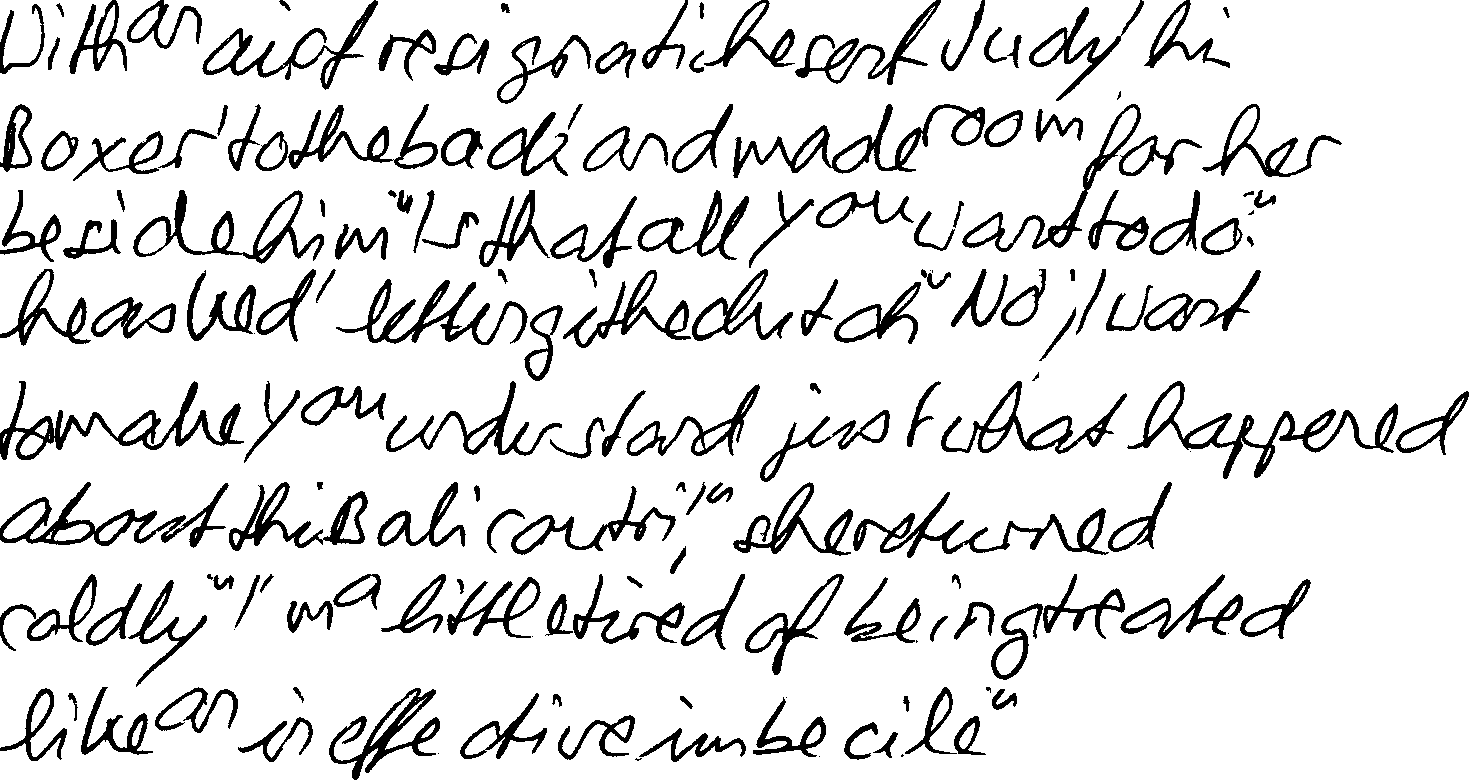 With an air of resignation he sent Judy, his
Boxer, to the back, and made room for her
beside him. "Is that all you want to do?"
he asked, letting in the clutch. "No, I want
to make you understand just what happened
about this Bali contract," she returned
coldly. "I'm a little tired of being treated
like an ineffective imbecile"